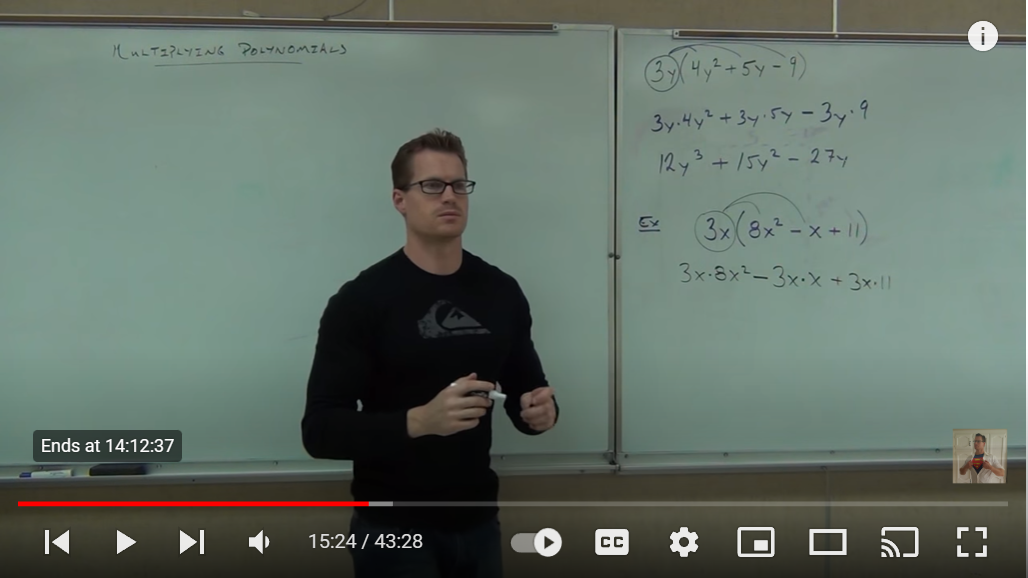 MULTIPLYING POLYNOMIALS
3y(4y² + 5y - 9)
3y·4y² + 3y·5y - 3y·9
12y³ + 15y² - 27y
Ex 3x(8x² - x + 11)
3x·8x² - 3x·x + 3x·11
Ends at 14:12:37
15:24 / 43:28
CC